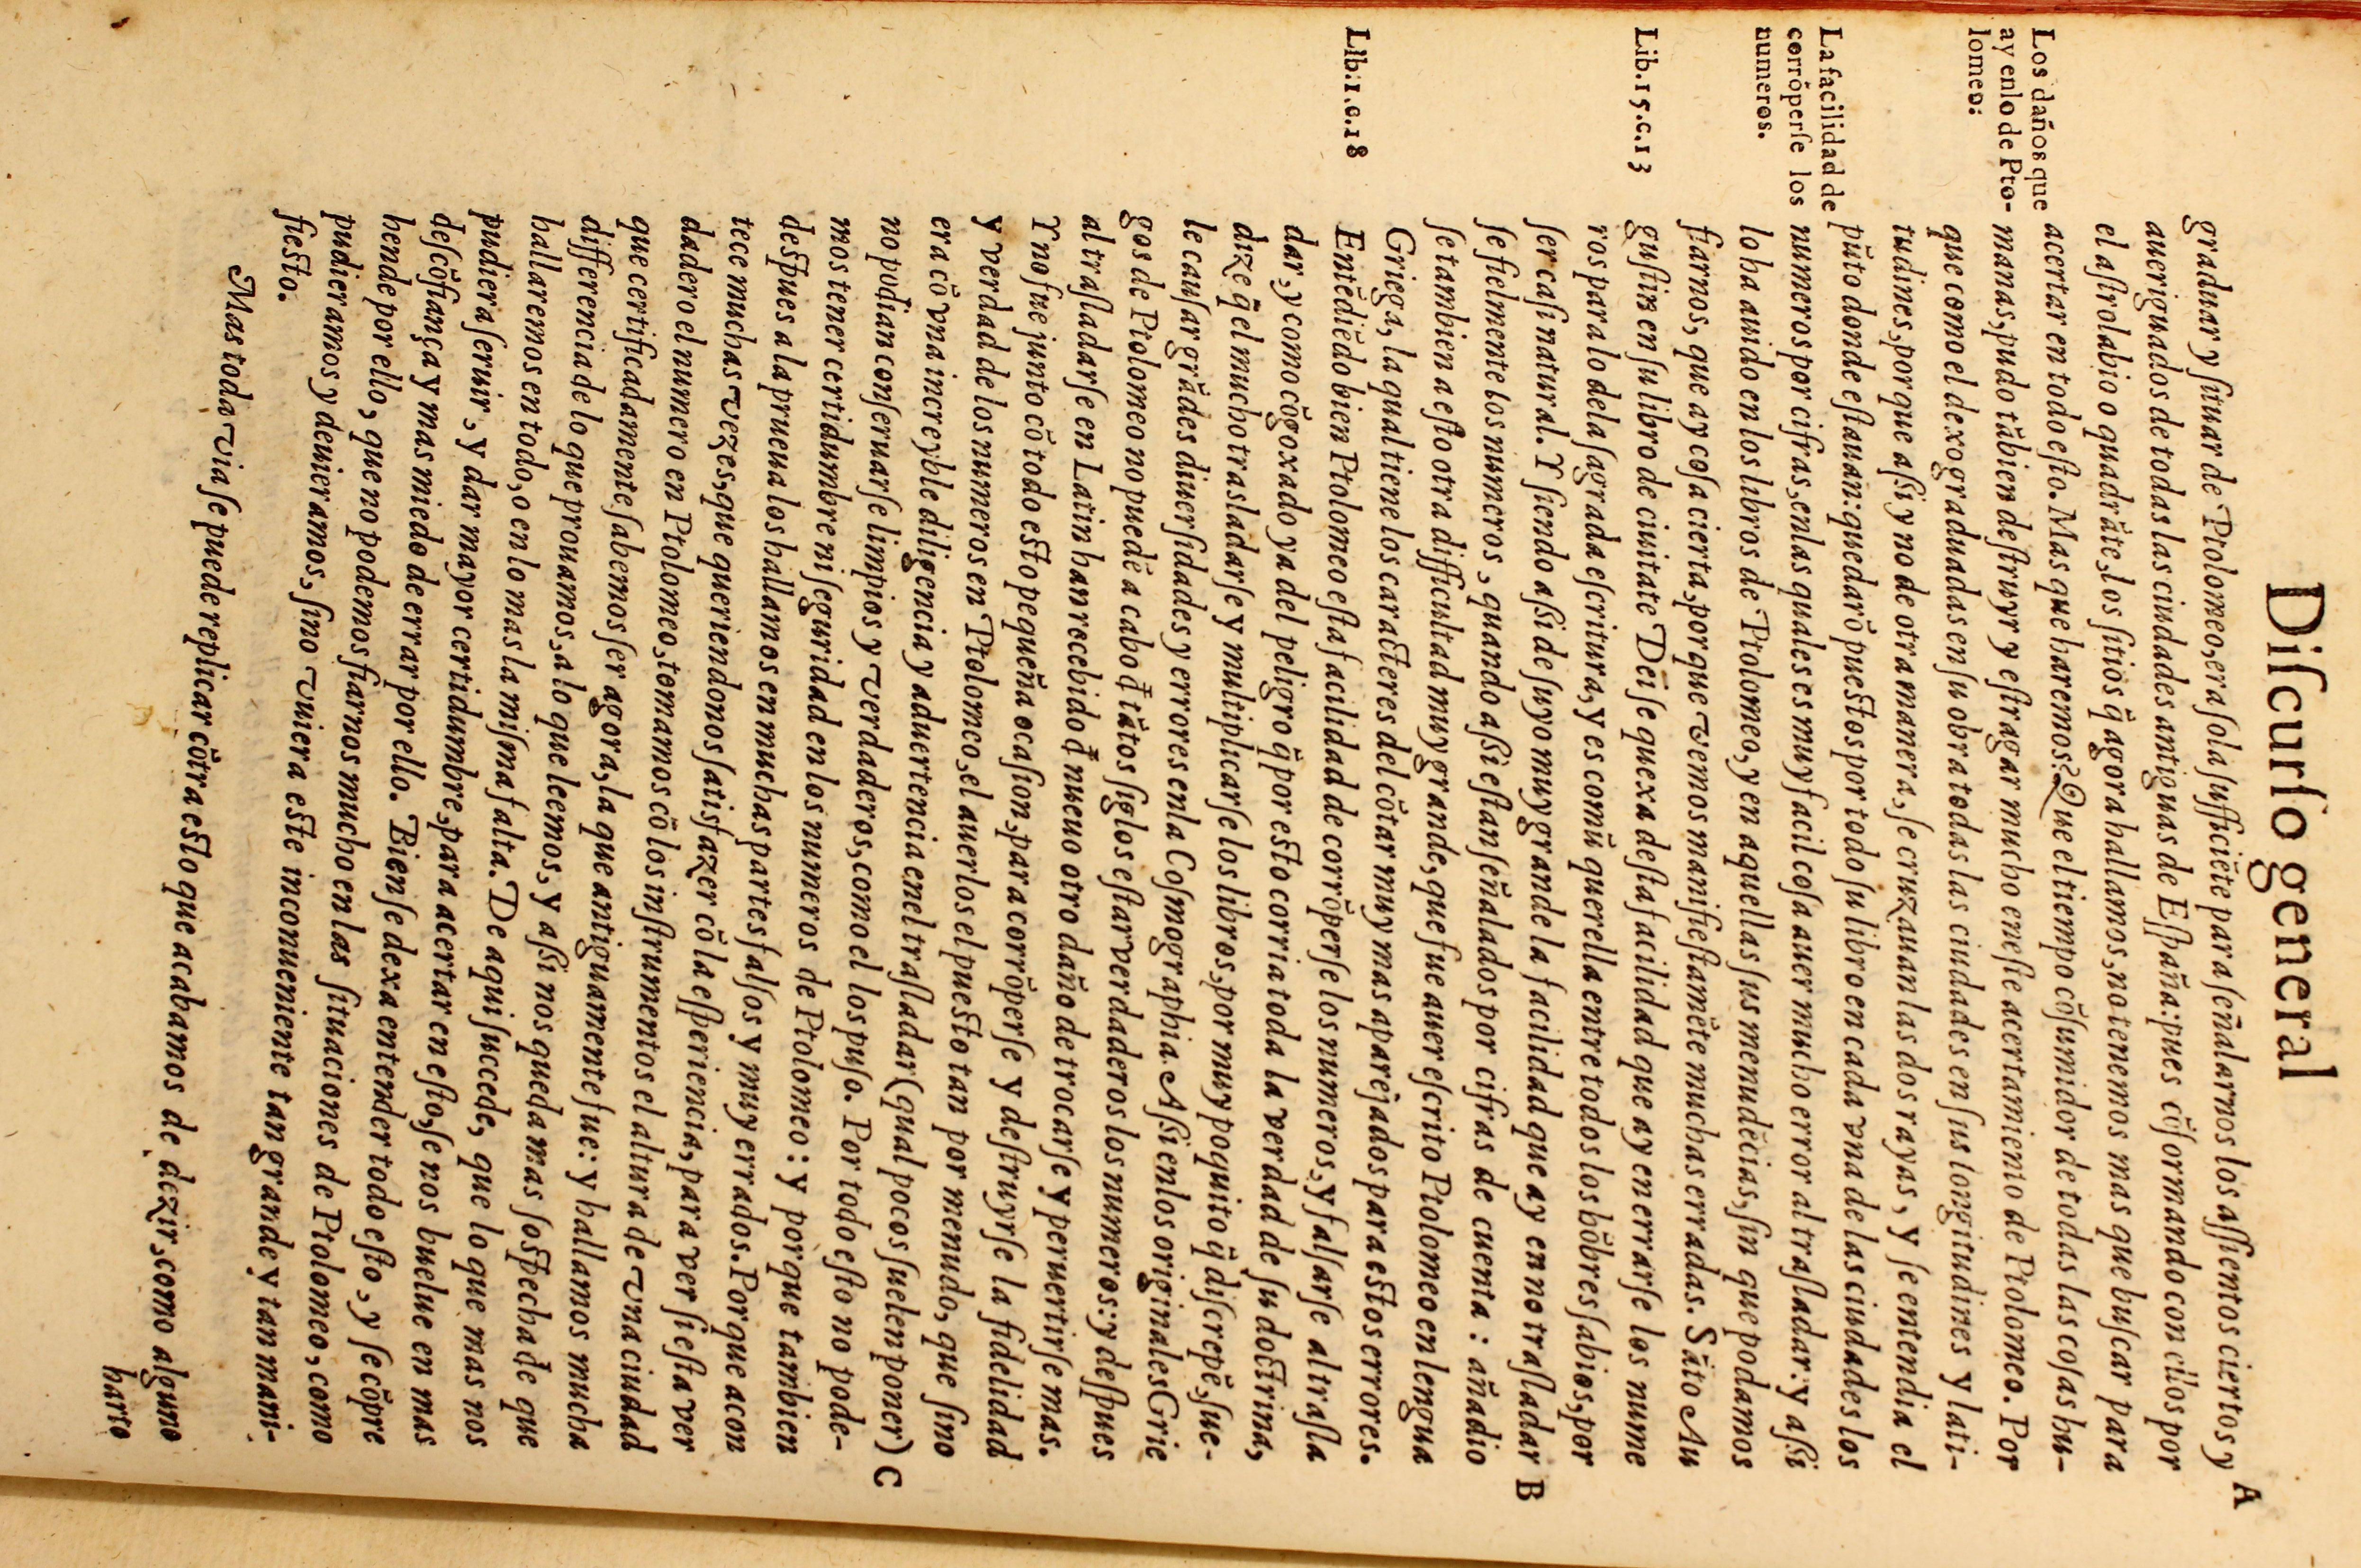 Diſcurſo general
graduar y ſituar de Ptolomeo, era ſola ſufficiẽte para ſeñalarnos los aſſientos ciertos y A
aueriguados de todas las ciudades antiguas de Eſpaña: pues cõformando con ellos por
el aſtrolabio o quadrãte, los ſitios q̃ agora hallamos, no tenemos mas que buſcar para
Los daños que
ay enlo de Pto-
lomeo:
acertar en todo eſto. Mas que haremos? Que el tiempo cõſumidor de todas las coſas hu-
manas, pudo tãbien deſtruyr y eſtragar mucho eneſte acertamiento de Ptolomeo. Por
que como el dexo graduadas en ſu obra todas las ciudades en ſus longitudines y lati-
tudines, porque aſsi y no de otra manera, ſe cruzauan las dos rayas, y ſe entendia el
La facilidad de
corrõperſe los
numeros.
pũto donde eſtauan: quedarõ pueſtos por todo ſu libro en cada vna de las ciudades los
numeros por cifras, enlas quales es muy facil coſa auer mucho error al traſladar: y aſsi
lo ha auido en los libros de Ptolomeo, y en aquellas ſus menudẽcias, ſin que podamos
fiarnos, que ay coſa cierta, porque vemos manifieſtamẽte muchas erradas. Sãto Au
Lib.15.c.13
guſtin en ſu libro de ciuitate Dei ſe quexa deſta facilidad que ay en errarſe los nume
ros para lo dela ſagrada eſcritura, y es comũ querella entre todos los hõbres ſabios, por
ſer caſi natural. Y ſiendo aſsi de ſuyo muy grande la facilidad que ay en no traſladar B
ſe fielmente los numeros, quando aſsi eſtan ſeñalados por cifras de cuenta: añadio
ſe tambien a eſto otra difficultad muy grande, que fue auer eſcrito Ptolomeo en lengua
Griega, la qual tiene los caracteres del cõtar muy mas aparejados para eſtos errores.
LIb:1.c.18
Entẽdiẽdo bien Ptolomeo eſta facilidad de corrõperſe los numeros, y falſarſe al traſla
dar, y como cõgoxado ya del peligro q̃ por eſto corria toda la verdad de ſu doctrina,
dize q̃ el mucho trasladarſe y multiplicarſe los libros, por muy poquito q̃ diſcrepẽ, ſue-
le cauſar grãdes diuerſidades y errores enla Coſmographia Aſsi enlos originales Grie
gos de Ptolomeo no puedẽ a cabo đ tãtos ſiglos eſtar verdaderos los numeros: y deſpues
al traſladarſe en Latin han recebido đ nueuo otro daño de trocarſe y peruertirſe mas.
Y no fue junto cõ todo eſto pequeña ocaſion, para corrõperſe y deſtruyrſe la fidelidad
y verdad de los numeros en Ptolomeo, el auerlos el pueſto tan por menudo, que ſino
era cõ vna increyble diligencia y aduertencia enel traſladar (qual pocos ſuelen poner) C
no podian conſeruarſe limpios y verdaderos, como el los puſo. Por todo eſto no pode-
mos tener certidumbre ni ſeguridad en los numeros de Ptolomeo: y porque tambien
deſpues a la prueua los hallamos en muchas partes falſos y muy errados. Porque acon
tece muchas vezes, que queriendonos ſatisfazer cõ la eſperiencia, para ver ſi eſta ver
dadero el numero en Ptolomeo, tomamos cõ los inſtrumentos el altura de vna ciudad
que certificadamente ſabemos ſer agora, la que antiguamente fue: y hallamos mucha
differencia de lo que prouamos, a lo que leemos, y aſsi nos queda mas ſoſpecha đ que
hallaremos en todo, o en lo mas la miſma falta. De aqui ſuccede, que lo que mas nos
pudiera ſeruir, y dar mayor certidumbre, para acertar en eſto, ſe nos buelue en mas
deſcõfiança y mas miedo de errar por ello. Bien ſe dexa entender todo eſto, y ſe cõpre
hende por ello, que no podemos fiarnos mucho en las ſituaciones de Ptolomeo, como
pudieramos y deuieramos, ſino vuiera eſte inconueniente tan grande y tan mani-
fieſto.
Mas toda via ſe puede replicar cõtra eſto que acabamos de dezir, como alguno
harto